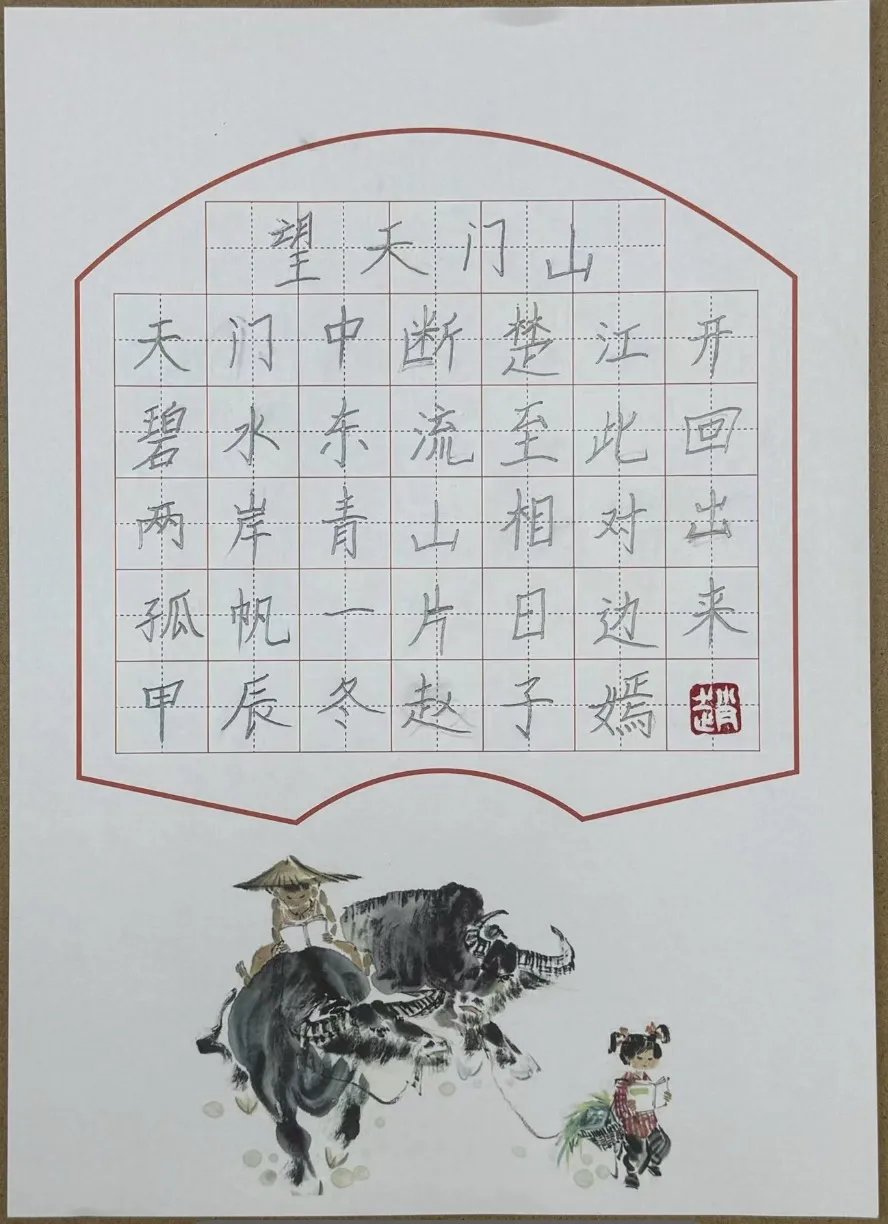 望天门山
天门中断楚江开
碧水东流至此回
两岸青山相对出
孤帆一片日边来
甲辰冬赵子嫣
趙